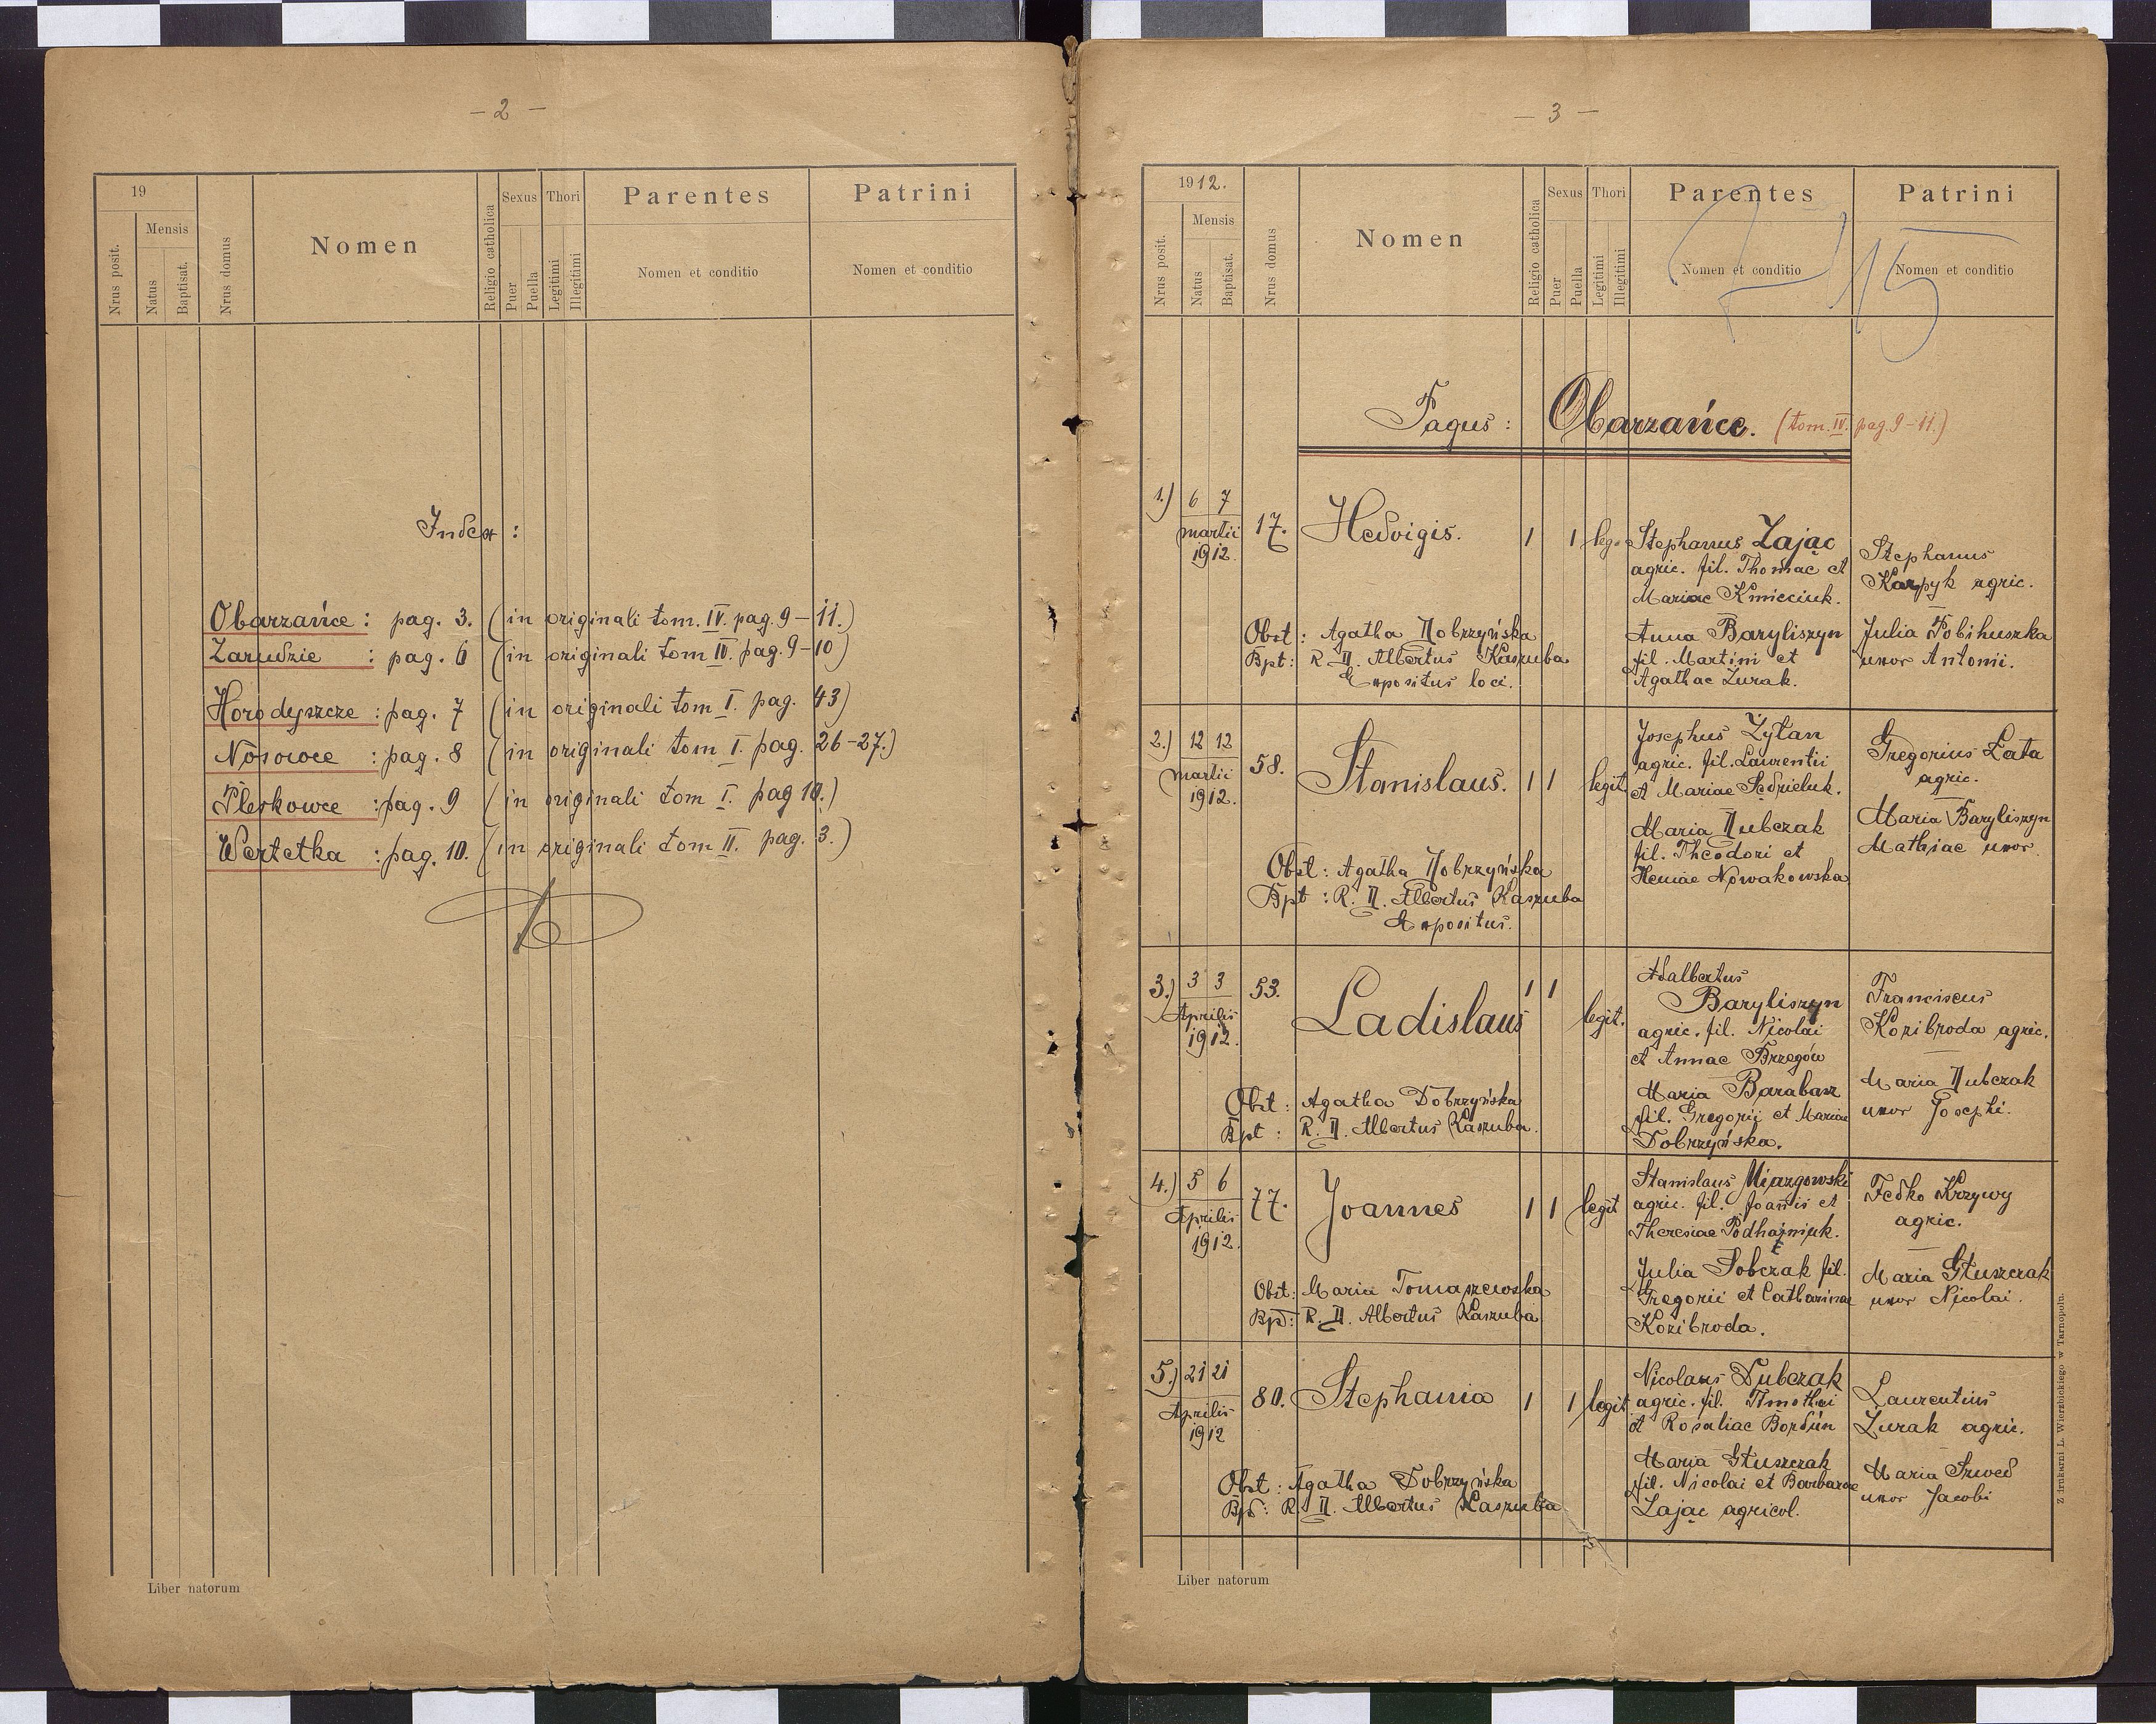 - 2 -
19
Nrus posit.
Mensis
Natus
Baptisat.
Nrus domus
Nomen
Religio catholica
Sexus
Puer
Puella
Thori
Legitimi
Illegitimi
Parentes
Nomen et conditio
Patrini
Nomen et conditio
Index :
Obarzańce : pag. 3. (in originali tom. IV. pag. 9 - 11.)
Zarudzie : pag. 6 (in originali tom IV. pag. 9-10)
Horodyszcze : pag. 7 (in originali tom I. pag. 43)
Nosowce : pag. 8 (in originali tom I. pag. 26-27.)
Pleskowce : pag. 9 (in originali tom I. pag 10.)
Wertetka : pag. 10. (in originali tom II. pag. 3.)
Liber natorum
- 3 -
1912.
Nrus posit.
Mensis
Natus
Baptisat.
Nrus domus
Nomen
Religio catholica
Sexus
Puer
Puella
Thori
Legitimi
Illegitimi
Parentes
Nomen et conditio
Patrini
Nomen et conditio
Pagus : Obarzańce. (tom. IV. pag. 9-11.)
1.) 6 7
martii
1912.
17. Hedvigis. 1 1 leg.
Stephanus Zając
agric. fil. Thomae et
Mariae Kmieciuk.
Anna Baryliszyn
fil. Martini et
Agathae Zurak.
Stephanus
Karpyk agric.
Julia Pobihuszka
uxor Antonii.
Obst : Agatha Dobrzyńska
Bpt : R. D. Albertus Kaszuba
Expositus loci.
2.) 12 12
martii
1912.
58. Stanislaus. 1 1 legit.
Josephus Zytan
agric. fil. Laurentii
et Mariae Sędzieluk.
Maria Dubczak
fil. Theodori et
Heniae Nowakowska
Gregorius Łata
agric.
Maria Baryliszyn
Mathiae uxor.
Obst : Agatha Dobrzyńska
Bpt : R. D. Albertus Kaszuba
Expositus.
3.) 3 3
Aprilis
1912.
53. Ladislaus 1 1 legit.
Adalbertus
Baryliszyn
agric. fil. Nicolai
et Annae Brzegów
Maria Barabasz
fil. Gregorij et Mariae
Dobrzyńska.
Franciscus
Kozibroda agric.
Maria Dubczak
uxor Josephi.
Obst : Agatha Dobrzyńska
Bpt : R. D. Albertus Kaszuba.
4.) 5 6
Aprilis
1912.
77. Joannes 1 1 legit
Stanislaus Miazgowski
agric. fil. Joannis et
Theresiae Podhajniuk.
Julia Sobczak fil.
Gregorii et Catharinae
Kozibroda.
Fedko Krzywy
agric.
Maria Głuszczak
uxor Nicolai.
Obst : Maria Tomaszewska
Bp : R. D. Albertus Kaszuba
5.) 21 21
Aprilis
1912
80. Stephania 1 1 legit
Nicolaus Dubczak
agric. fil. Timothei
et Rosaliae Bordun
Maria Głuszczak
fil. Nicolai et Barbarae
Zając agricol.
Laurentius
Zurak agric.
Maria Szwed
uxor Jacobi
Obst : Agatha Dobrzyńska
Bp : R. D. Albertus Kaszuba
Liber natorum
Z drukarni L. Wierzbickiego w Tarnopolu.